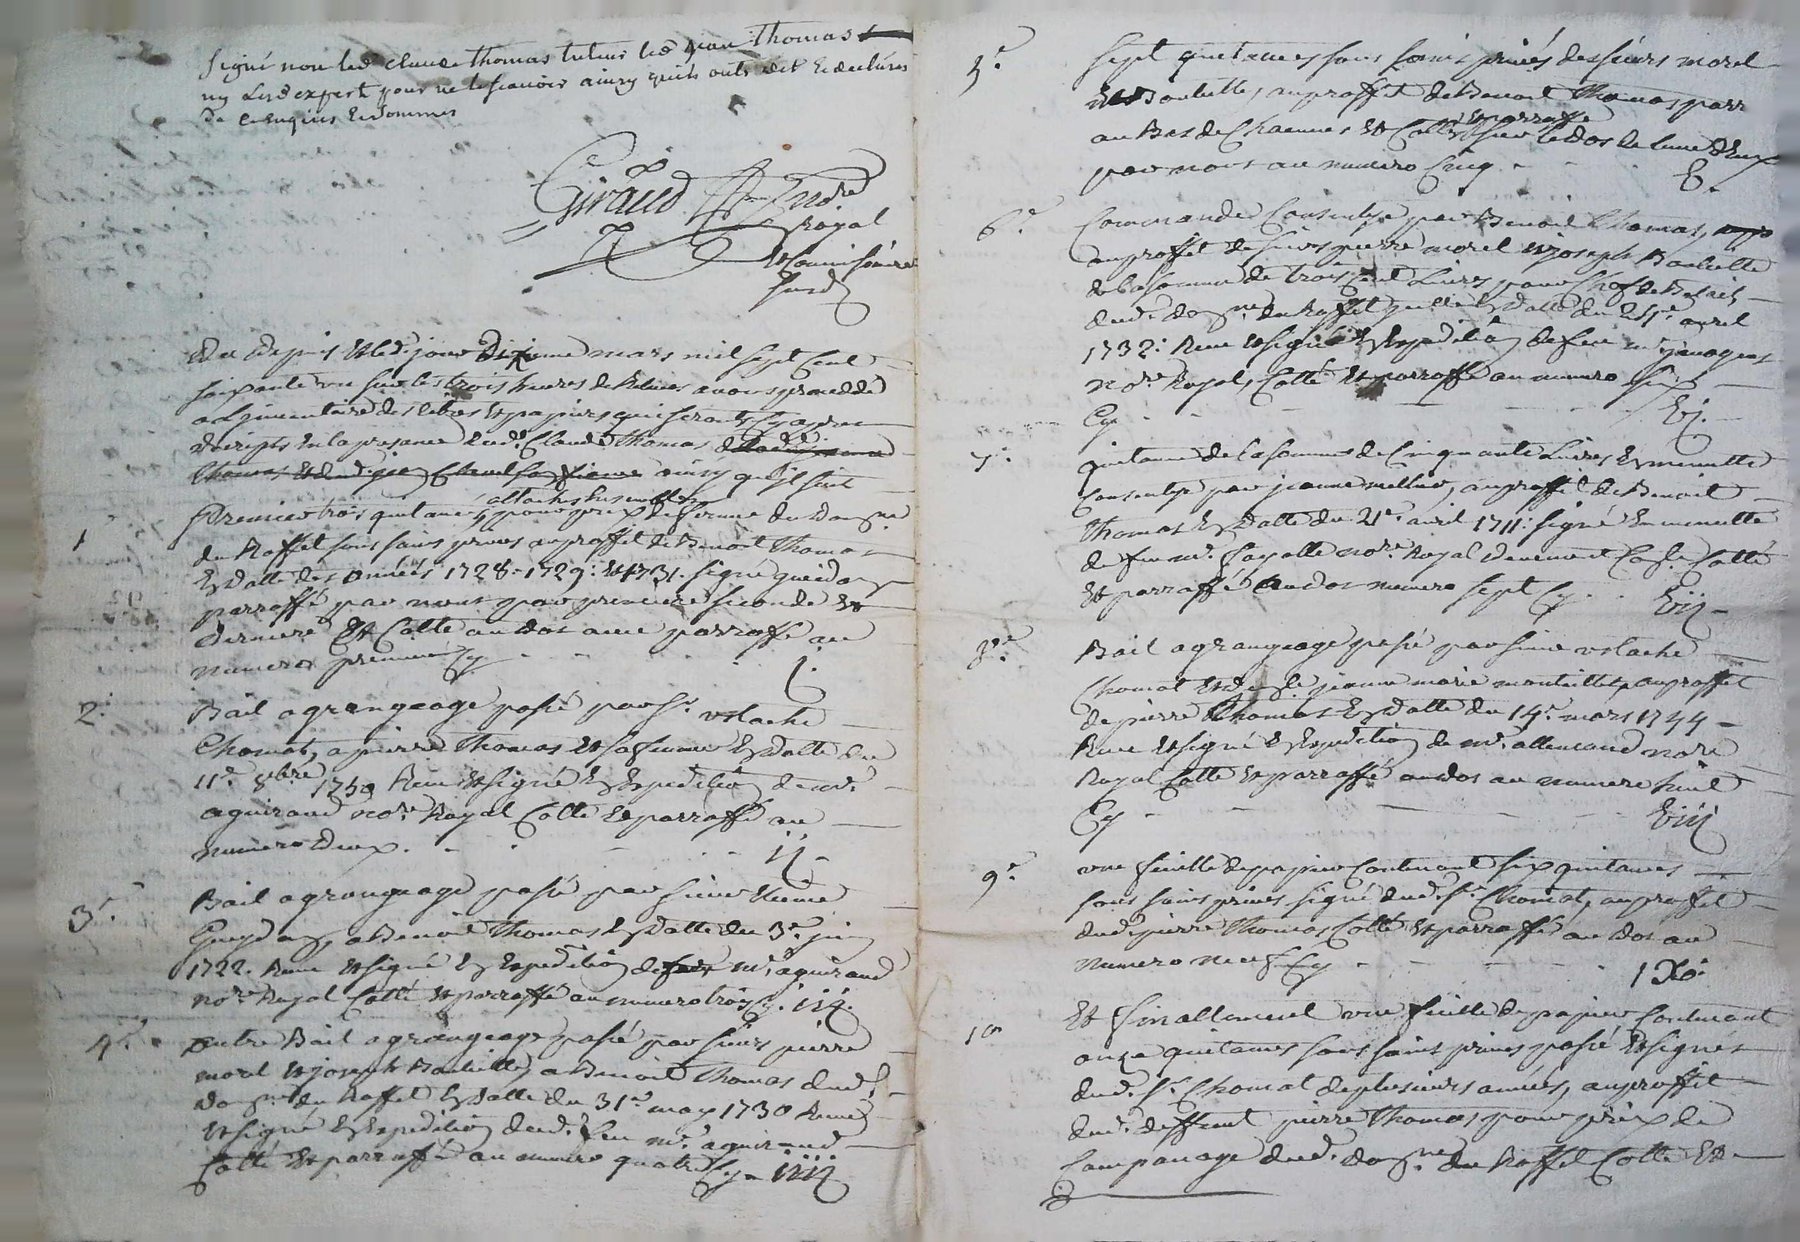 signé non led claude Thomas tuteur led jean Thomas
ny led expert pour ne le scavoir ainsy quils onts dit et declarés
de ce enquis et sommes
Giraud
Royal
Commissaire
susd
Du depuis et led. jour dixieme mars mil sept cent
soixante une sur les trois heures de relevée avons procedé
a linventaire des titres et papiers qui seronts cy apres
decripts en la presance dud. Claude Thomas
Thomas ainsy qu'il suit
attachés ensembles
1 Premier trois quitances pour prix de ferme du domne
du Roffet sous sains privés au proffit de Benoit Thomas
en datte des années 1728: 1729: et 1731. signé gueidan
parraffé par nous par premiere seconde et
derniere et cotté au dos avec parraffe au
numero premier cy - - - j.
2. Bail a grangeage passé par sr. ustache
Chomat, a pierre Thomas et sa femme en datte du
11e. 8bre 1750 Receu et signé en expedition de me.
aguiraud nore. Royal Cotté et parraffé au
numero deux. - - - ij.
3e. Bail a grangeage passé par sieur
Gueydan, a Benoit Thomas en datte du 3e. juin
1722. Receu et signé en expedition de me. aguiraud
nore. Royal Cotté et parraffé au numero trois cy. iij.
4e. autre Bail a grangeage passé par sieurs pierre
morel et joseph a Benoit Thomas dud.
domne. du Roffet en datte du 31e. may 1730 Receu
et signé en expedition dud. feu me. aguiraud
Cotté et parraffé au numero quatre cy - iiij
5.e sept quitances sous sains privés des sieurs morel
et au proffit de Benoit Thomas par
au Bas de Chacunes et Cotté et parraffé sur le dos de lune d'eux
par nous au numero Cinq - - V.
6.e Commande Consentye par Benoit Thomas,
au proffit de sieurs pierre morel et joseph
de la somme de trois Cent Livres pour Chef de Betail
dud. domne. du Roffet en datte du 21e. avril
1732: Receu et signé en expedition de feu
nore. Royal, Cotté et parraffé au numero six
Cy - - - Vj.
7.e quitance de la somme de Cinquante Livres en minutte
Consentye par jeanne au proffit de Benoit
Thomas en datte du 21e. avril 1711: signé en minutte
de feu me. fayolle nore. Royal Cotté
et parraffé au dos numero sept Cy - - Vij -
8.e Bail a grangeage passé par sieur ustache
Chomat et jeanne marie au proffit
de pierre Thomas en datte du 14e. mars 1744 -
Receu et signé en expedition de me. allemand nore
Royal Cotté et parraffé au dos au numero huit
Cy - - - Viij
9.e une feuille de papier Contenant six quitances
sous sains privés signé dud. sr. Chomat, au proffit
dud. pierre Thomas Cotté et parraffé au dos au
numero neuf Cy - - - iX.
10 Et finallement une feuille de papier Contenant
onze quitances sous sains privés passé et signes
dud. sr. Chomat de plusieurs années, au proffit
dud. deffunt pierre Thomas pour prix de
dud. domne du Roffet Cotté et